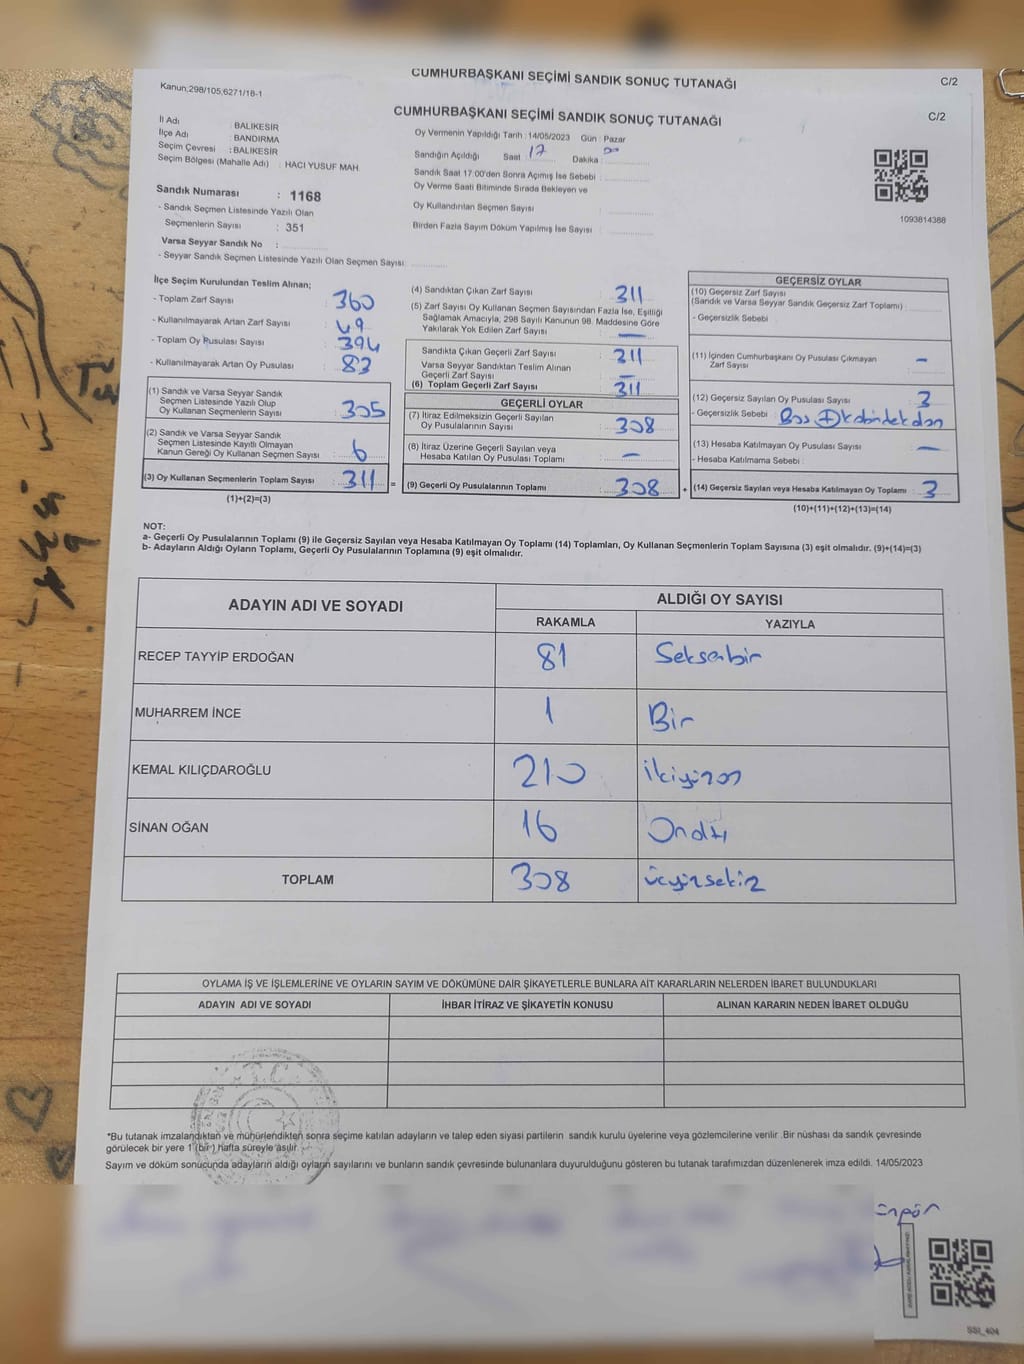 CUMHURBAŞKANI SEÇİMİ SANDIK SONUÇ TUTANAĞI
C/2
Kanun,298/105,6271/18-1
CUMHURBAŞKANI SEÇİMİ SANDIK SONUÇ TUTANAĞI
C/2
İl Adı : BALIKESİR
İlçe Adı : BANDIRMA
Seçim Çevresi : BALIKESİR
Seçim Bölgesi (Mahalle Adı) : HACI YUSUF MAH.
Sandık Numarası : 1168
- Sandık Seçmen Listesinde Yazılı Olan
Seçmenlerin Sayısı : 351
Varsa Seyyar Sandık No :
- Seyyar Sandık Seçmen Listesinde Yazılı Olan Seçmen Sayısı:
Oy Vermenin Yapıldığı Tarih : 14/05/2023 Gün : Pazar
Sandığın Açıldığı Saat 17 Dakika 00
Sandık Saat 17:00'den Sonra Açımış İse Sebebi :
Oy Verme Saati Bitiminde Sırada Bekleyen ve
Oy Kullandırılan Seçmen Sayısı :
Birden Fazla Sayım Döküm Yapılmış İse Sayısı :
1093814388
İlçe Seçim Kurulundan Teslim Alınan;
- Toplam Zarf Sayısı : 360
- Kullanılmayarak Artan Zarf Sayısı : 49
- Toplam Oy Pusulası Sayısı : 394
- Kullanılmayarak Artan Oy Pusulası : 83
(1) Sandık ve Varsa Seyyar Sandık
Seçmen Listesinde Yazılı Olup
Oy Kullanan Seçmenlerin Sayısı : 305
(2) Sandık ve Varsa Seyyar Sandık
Seçmen Listesinde Kayıtlı Olmayan
Kanun Gereği Oy Kullanan Seçmen Sayısı : 6
(3) Oy Kullanan Seçmenlerin Toplam Sayısı : 311
(1)+(2)=(3)
(4) Sandıktan Çıkan Zarf Sayısı : 311
(5) Zarf Sayısı Oy Kullanan Seçmen Sayısından Fazla İse, Eşitliği
Sağlamak Amacıyla, 298 Sayılı Kanunun 98. Maddesine Göre
Yakılarak Yok Edilen Zarf Sayısı : —
Sandıkta Çıkan Geçerli Zarf Sayısı : 311
Varsa Seyyar Sandıktan Teslim Alınan
Geçerli Zarf Sayısı : —
(6) Toplam Geçerli Zarf Sayısı : 311
GEÇERLİ OYLAR
(7) İtiraz Edilmeksizin Geçerli Sayılan
Oy Pusulalarının Sayısı : 308
(8) İtiraz Üzerine Geçerli Sayılan veya
Hesaba Katılan Oy Pusulası Toplamı : —
= (9) Geçerli Oy Pusulalarının Toplamı : 308
GEÇERSİZ OYLAR
(10) Geçersiz Zarf Sayısı
(Sandık ve Varsa Seyyar Sandık Geçersiz Zarf Toplamı) :
- Geçersizlik Sebebi :
(11) İçinden Cumhurbaşkanı Oy Pusulası Çıkmayan
Zarf Sayısı : —
(12) Geçersiz Sayılan Oy Pusulası Sayısı : 3
- Geçersizlik Sebebi :
(13) Hesaba Katılmayan Oy Pusulası Sayısı : —
- Hesaba Katılmama Sebebi :
+ (14) Geçersiz Sayılan veya Hesaba Katılmayan Oy Toplamı : 3
(10)+(11)+(12)+(13)=(14)
NOT:
a- Geçerli Oy Pusulalarının Toplamı (9) ile Geçersiz Sayılan veya Hesaba Katılmayan Oy Toplamı (14) Toplamları, Oy Kullanan Seçmenlerin Toplam Sayısına (3) eşit olmalıdır. (9)+(14)=(3)
b- Adayların Aldığı Oyların Toplamı, Geçerli Oy Pusulalarının Toplamına (9) eşit olmalıdır.
ADAYIN ADI VE SOYADI
ALDIĞI OY SAYISI
RAKAMLA YAZIYLA
RECEP TAYYİP ERDOĞAN 81 Seksenbir
MUHARREM İNCE 1 Bir
KEMAL KILIÇDAROĞLU 210 ikiyüzon
SİNAN OĞAN 16 Onaltı
TOPLAM 308 üçyüzsekiz
OYLAMA İŞ VE İŞLEMLERİNE VE OYLARIN SAYIM VE DÖKÜMÜNE DAİR ŞİKAYETLERLE BUNLARA AİT KARARLARIN NELERDEN İBARET BULUNDUKLARI
ADAYIN ADI VE SOYADI İHBAR İTİRAZ VE ŞİKAYETİN KONUSU ALINAN KARARIN NEDEN İBARET OLDUĞU
T.C.
*Bu tutanak imzalandıktan ve mühürlendikten sonra seçime katılan adayların ve talep eden siyasi partilerin sandık kurulu üyelerine veya gözlemcilerine verilir .Bir nüshası da sandık çevresinde
görülecek bir yere 1 (bir) hafta süreyle asılır.
Sayım ve döküm sonucunda adayların aldığı oyların sayılarını ve bunların sandık çevresinde bulunanlara duyurulduğunu gösteren bu tutanak tarafımızdan düzenlenerek imza edildi. 14/05/2023
SSI_404